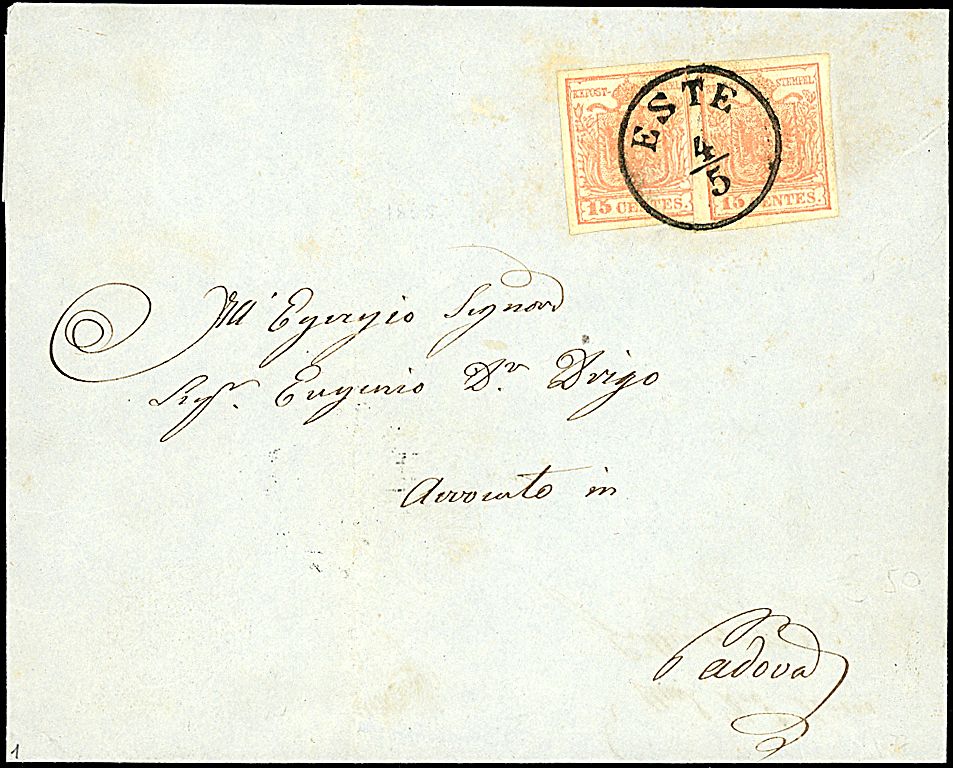 KKPOST- STEMPEL
ESTE
4/5
15 CENTES. 15 CENTES.
All' Egregio Signore
Sigr. Eugenio Dr. Drigo
Avvocato in
Padova
50
1